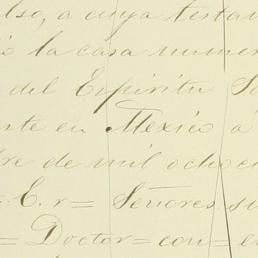 lso, a cuya testam
ó la casa numer
del Espíritu Sa
te en México á
re de mil ochoci
E. r = Señores. su
= Doctor = con = e